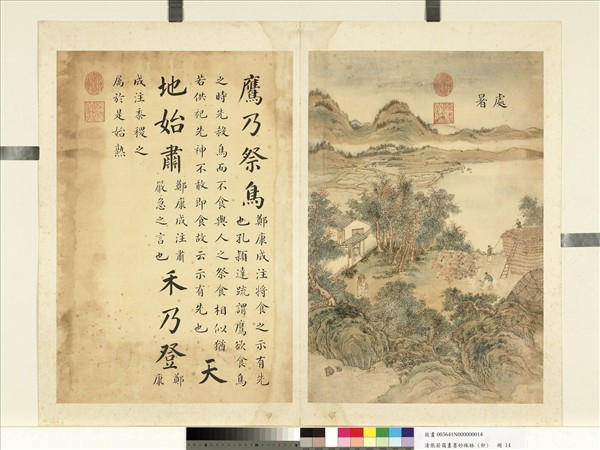 處暑
鷹乃祭鳥
鄭康成注將食之示有先
也孔穎達疏謂鷹欲食鳥
之時先殺鳥而不食與人之祭食相似猶
若供祀先神不敢即食故云示有先也
天
地始肅
鄭康成注肅
嚴急之言也
禾乃登
鄭
康
成注黍稷之
屬於是始熟
故畫 003641N000000014
清張若靄畫墨妙珠林（申） 冊 14